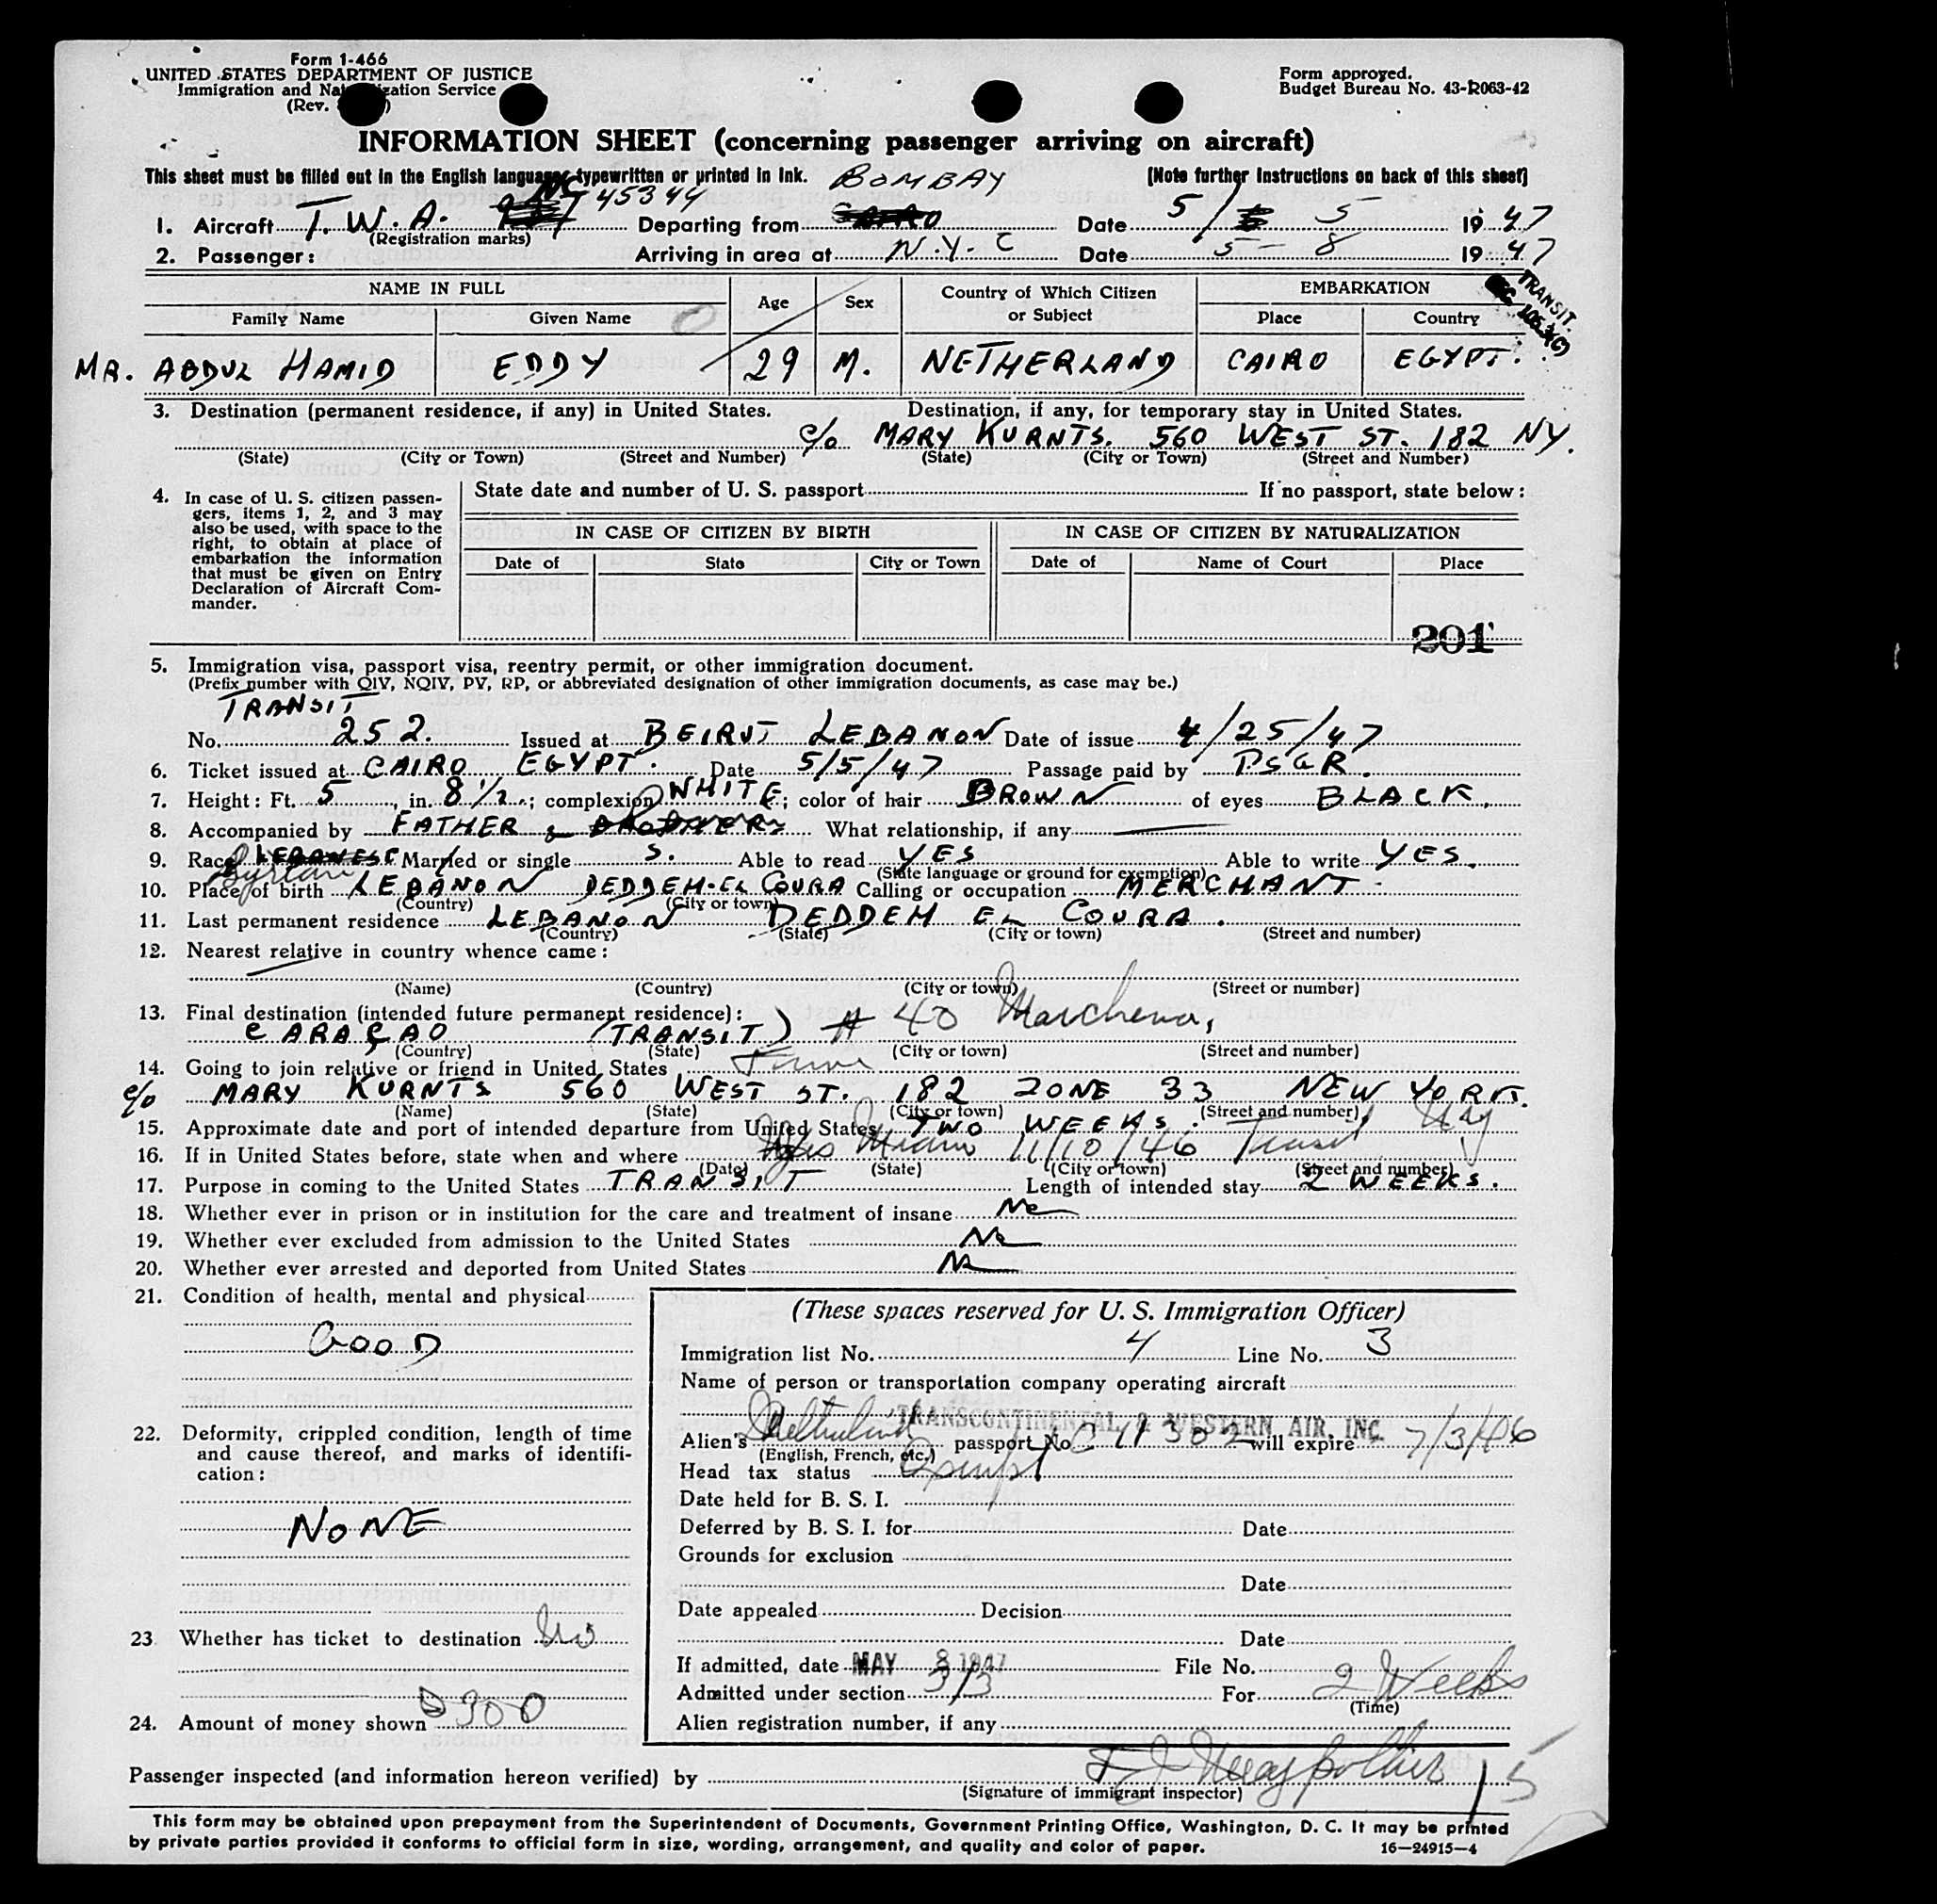 Form 1-466
UNITED STATES DEPARTMENT OF JUSTICE
Immigration and Naturalization Service
(Rev. )
Form approved.
Budget Bureau No. 43-R063-42
INFORMATION SHEET (concerning passenger arriving on aircraft)
This sheet must be filled out in the English language, typewritten or printed in ink. BOMBAY [Note further instructions on back of this sheet]
1. Aircraft T.W.A. NC 45344 Departing from CAIRO Date 5/5 1947
(Registration marks)
2. Passenger: Arriving in area at N.Y.C Date 5-8 1947
TRANSIT.
NAME IN FULL Age Sex Country of Which Citizen or Subject EMBARKATION
Family Name Given Name Place Country
MR. ABDUL HAMID EDDY 29 M. NETHERLAND CAIRO EGYPT.
3. Destination (permanent residence, if any) in United States. Destination, if any, for temporary stay in United States.
c/o MARY KURNTS. 560 WEST ST. 182 NY.
(State) (City or Town) (Street and Number) (State) (City or Town) (Street and Number)
4. In case of U. S. citizen passengers, items 1, 2, and 3 may also be used, with space to the right, to obtain at place of embarkation the information that must be given on Entry Declaration of Aircraft Commander.
State date and number of U. S. passport If no passport, state below:
IN CASE OF CITIZEN BY BIRTH IN CASE OF CITIZEN BY NATURALIZATION
Date of State City or Town Date of Name of Court Place
201
5. Immigration visa, passport visa, reentry permit, or other immigration document.
(Prefix number with QIV, NQIV, PV, RP, or abbreviated designation of other immigration documents, as case may be.)
TRANSIT
No. 252. Issued at BEIRUT LEBANON Date of issue 4/25/47
6. Ticket issued at CAIRO EGYPT. Date 5/5/47 Passage paid by PSGR.
7. Height: Ft. 5, in. 8 1/2; complexion WHITE; color of hair BROWN of eyes BLACK.
8. Accompanied by FATHER & BROTHERS What relationship, if any
9. Race LEBANESE Married or single S. Able to read YES Able to write YES.
Syrian (State language or ground for exemption)
10. Place of birth LEBANON DEDDEH-EL COURA Calling or occupation MERCHANT.
(Country) (City or town)
11. Last permanent residence LEBANON DEDDEH EL COURA.
(Country) (State) (City or town) (Street and number)
12. Nearest relative in country whence came:
(Name) (Country) (City or town) (Street or number)
13. Final destination (intended future permanent residence):
CARAÇAO (TRANSIT) # 40 Marchena,
(Country) (State) (City or town) (Street and number)
14. Going to join relative or friend in United States
c/o MARY KURNTS 560 WEST ST. 182 ZONE 33 NEW YORK.
(Name) (State) (City or town) (Street and number)
15. Approximate date and port of intended departure from United States TWO WEEKS.
16. If in United States before, state when and where Yes Miami 11/10/46 Transit
(Date) (State) (City or town) (Street and number)
17. Purpose in coming to the United States TRANSIT Length of intended stay 2 WEEKS.
18. Whether ever in prison or in institution for the care and treatment of insane No
19. Whether ever excluded from admission to the United States No
20. Whether ever arrested and deported from United States No
21. Condition of health, mental and physical
GOOD
22. Deformity, crippled condition, length of time and cause thereof, and marks of identification:
NONE
23. Whether has ticket to destination No
24. Amount of money shown $300
(These spaces reserved for U. S. Immigration Officer)
Immigration list No. 4 Line No. 3
Name of person or transportation company operating aircraft
TRANSCONTINENTAL & WESTERN AIR, INC.
Alien's Netherland passport No. C 11302 will expire 7/3/46
(English, French, etc.)
Head tax status Exempt
Date held for B. S. I.
Deferred by B. S. I. for Date
Grounds for exclusion
Date
Date appealed Decision
Date
If admitted, date MAY 8 1947 File No.
Admitted under section 3/3 For 2 Weeks
(Time)
Alien registration number, if any
Passenger inspected (and information hereon verified) by
(Signature of immigrant inspector)
15
This form may be obtained upon prepayment from the Superintendent of Documents, Government Printing Office, Washington, D. C. It may be printed
by private parties provided it conforms to official form in size, wording, arrangement, and quality and color of paper. 16—24915-4